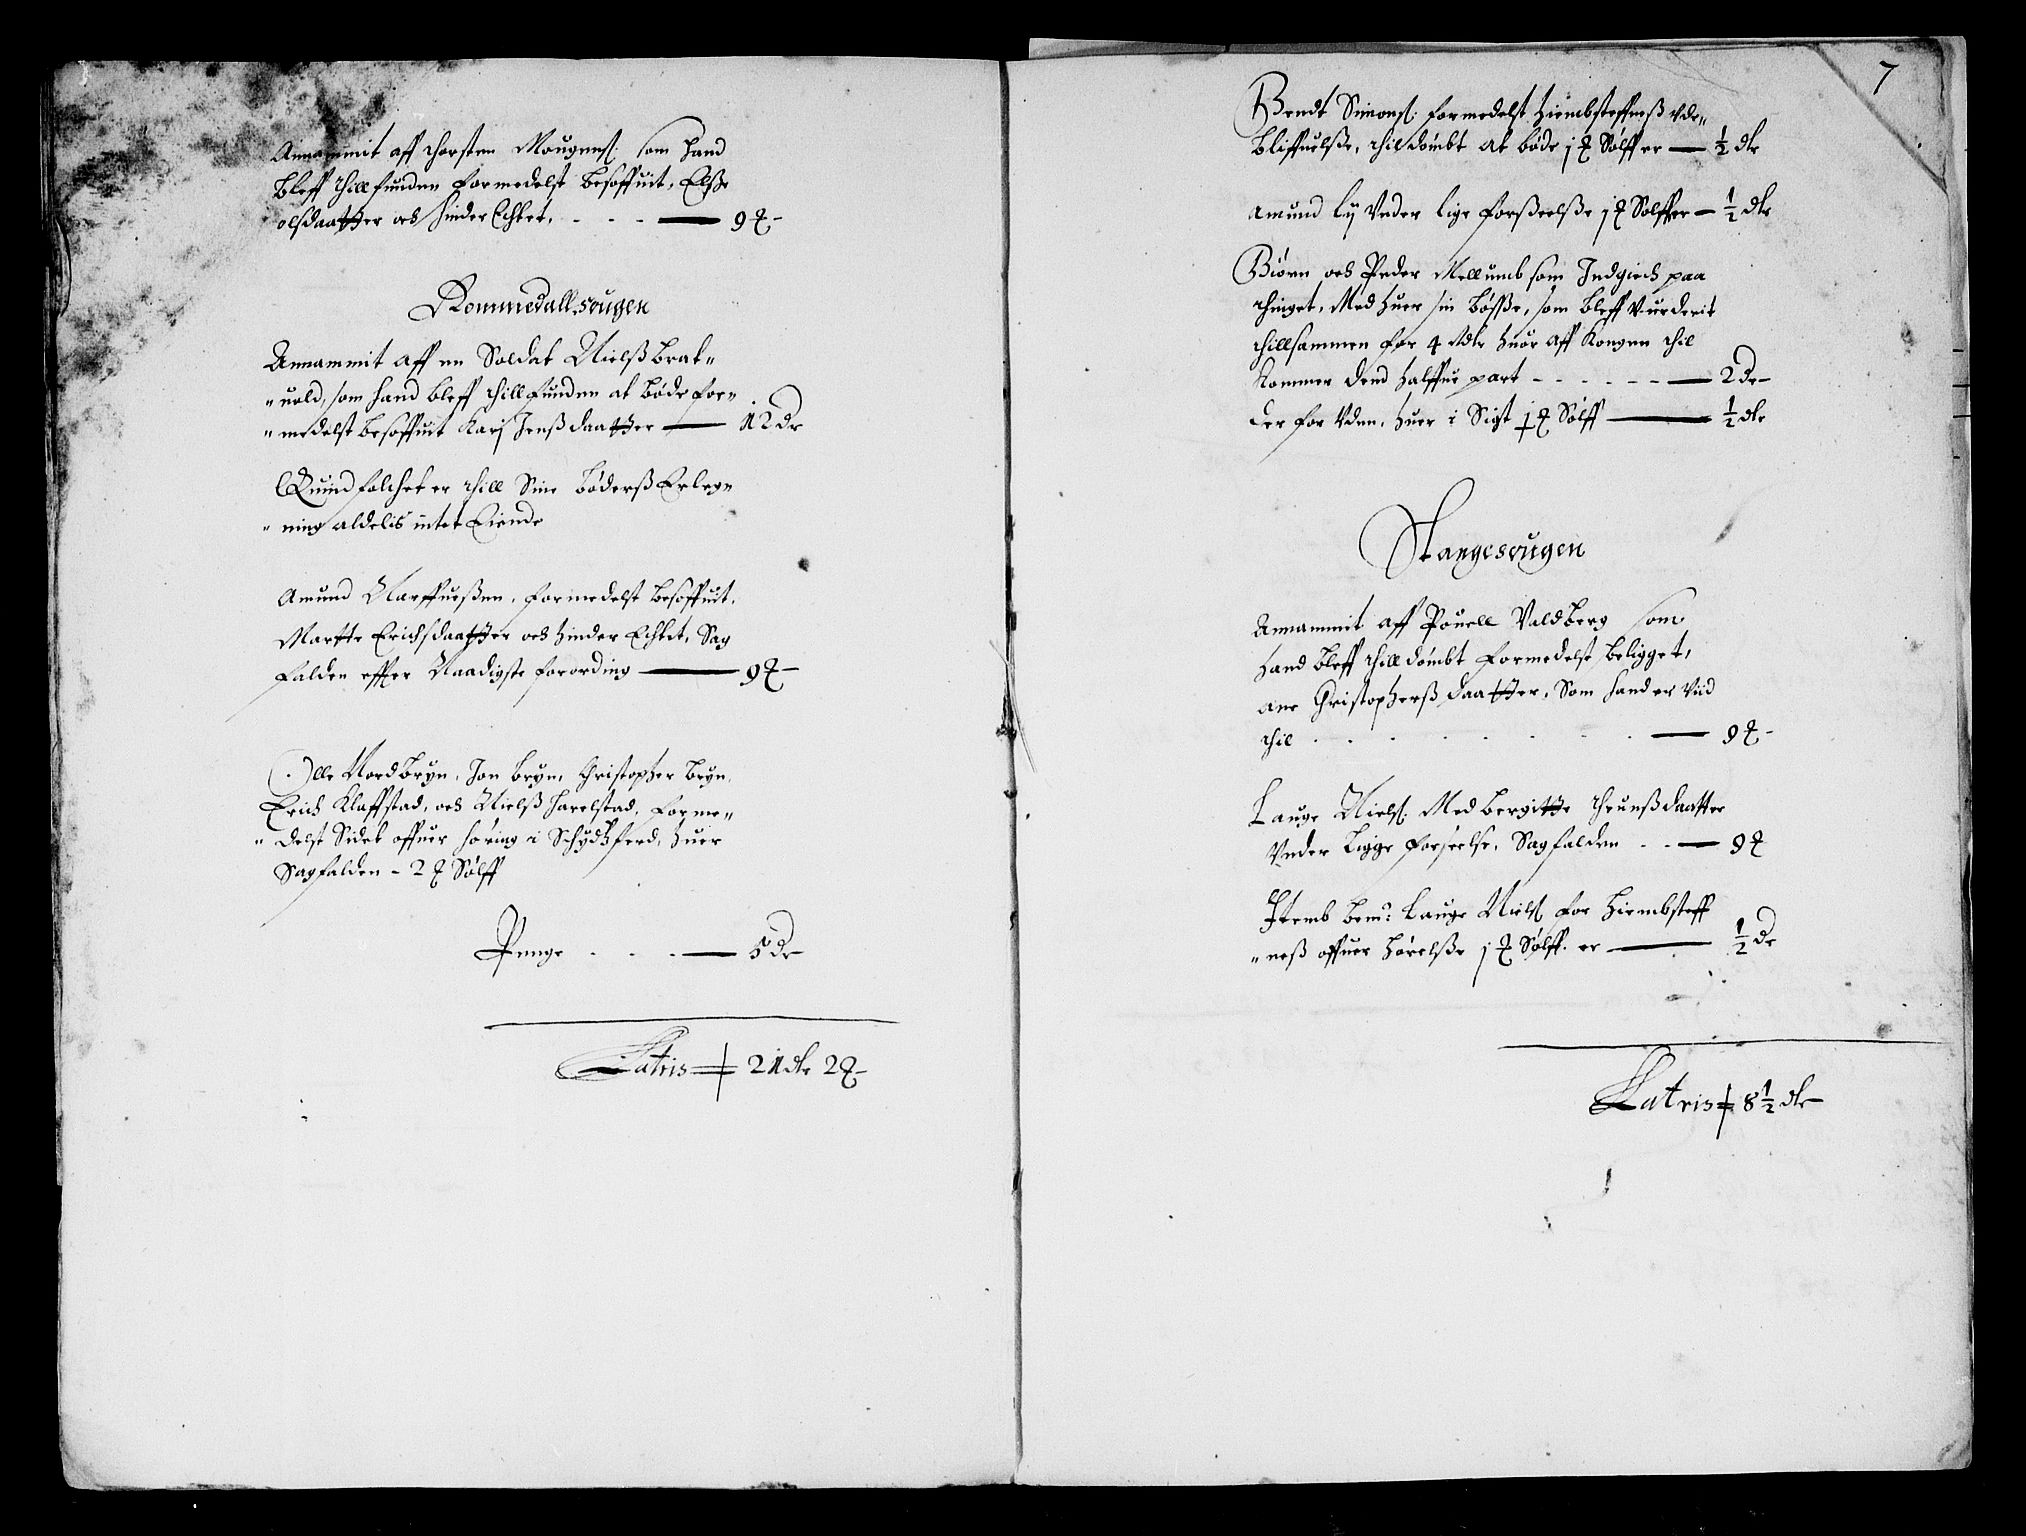 Annammit aff Thorsten Mougens: som hand
bleff thillfunden formedelst besoffuit, Elsße
olsdaatter och hinder Echtet, - - - — 9 ꝶ -
Rommedallsougen
Annammit aff en Soldat Nielß brat„
„uold, som hand bleff thillfunden at bøde for„
„medelst besoffuit Karj Jenßdaatter — 12 dr
Quindfolchet er thill Sine bøderß Erleg„
„ning aldelis intet Eiende
Amund Narffueßen, formedelst besoffuit,
Martte Erichsdaatter och hinder Echtet, Sag
falden effter Naadigste forording — 9 ꝶ -
Olle Nordbryn, Jon bryn, Christopher bryn,
Erich Klaffstad, och Nielß harelstad, forme„
„delst Sidet offuer høring i Schydtzferd, huer
Sagfalden - 2 ꝶ Sølff
Penge - - - — 5 dr
Latris 21 dlr 2 ꝶ -
7
Bendt Simons: formedelst hiembsteffneß vde„
bliffuelße, thildømbt at bøde j ꝶ Sølff er — ½ dlr
Amund lÿ Vnder lige forßeelße j ꝶ Sølff er — ½ dlr
Biørn och Peder Mellumb som Indgiech paa
thinget, Med huer sin bøsße, som bleff Vurderit
thillsammen for 4 Rdlr huor aff Kongen thil
kommer dend halffue part - - - - - — 2 dr -
der for Vden, huer i Sigt j ꝶ Sølff — ½ dlr
Stangesougen
Annammit aff Pouell Valdberg som
hand bleff thilldømbt formedelst beligget,
ane Christopherß daatter, Som hand er Viid
thil - - - - - - - — 9 ꝶ -
Lauge Niels: Med bergitte thrunßdaatter
Vnder Ligge forseelse, Sagfalden - - — 9 ꝶ
Itemb bem: Lauge Niels: for hiembsteff
„neß offuer hørelße j ꝶ Sølff. er — ½ dr
Latris 8 ½ dlr